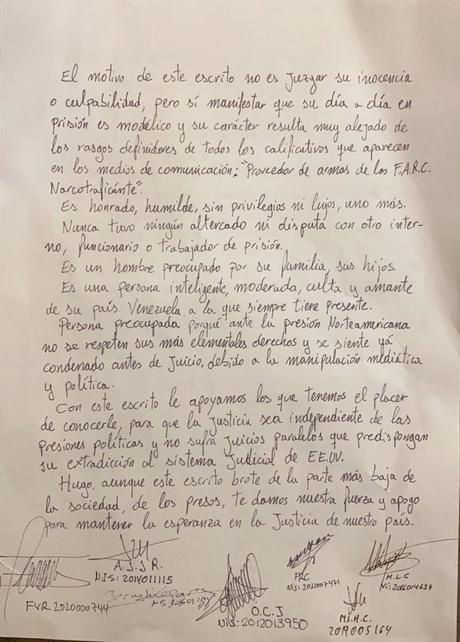 El motivo de este escrito no es Juzgar su inocencia
o culpabilidad, pero sí manifestar que su día a día en
prisión es modélico y su carácter resulta muy alejado de
los rasgos definidores de todos los calificativos que aparecen
en los medios de comunicación: "Proveedor de armas de las F.A.R.C.
Narcotraficante".
Es honrado, humilde, sin privilegios ni lujos, uno más.
Nunca tuvo ningún altercado ni disputa con otro inter-
no, funcionario o trabajador de prisión.
Es un hombre preocupado por su familia, sus hijos.
Es una persona inteligente, moderada, culta y amante
de su país Venezuela, a la que siempre tiene presente.
Persona preocupada porque ante la presión Norteamericana
no se respeten sus más elementales derechos y se siente yá
condenado antes de Juicio, debido a la manipulación mediática
y política.
Con este escrito le apoyamos los que tenemos el placer
de conocerle, para que la Justicia sea independiente de las
presiones políticas y no sufra Juicios paralelos que predispongan
su extradicción al sistema Judicial de EE.UU.
Hugo, aunque este escrito brote de la parte más baja de
la sociedad, de los presos, te damos nuestra fuerza y apoyo
para mantener la esperanza en la Justicia de nuestro país.
A.J.J.R.
NIS: 2014011115
FVR 2020000744
O.C.J
NIS: 2012013950
NIS: 2021007471
M.L.G
M.S.H.C.